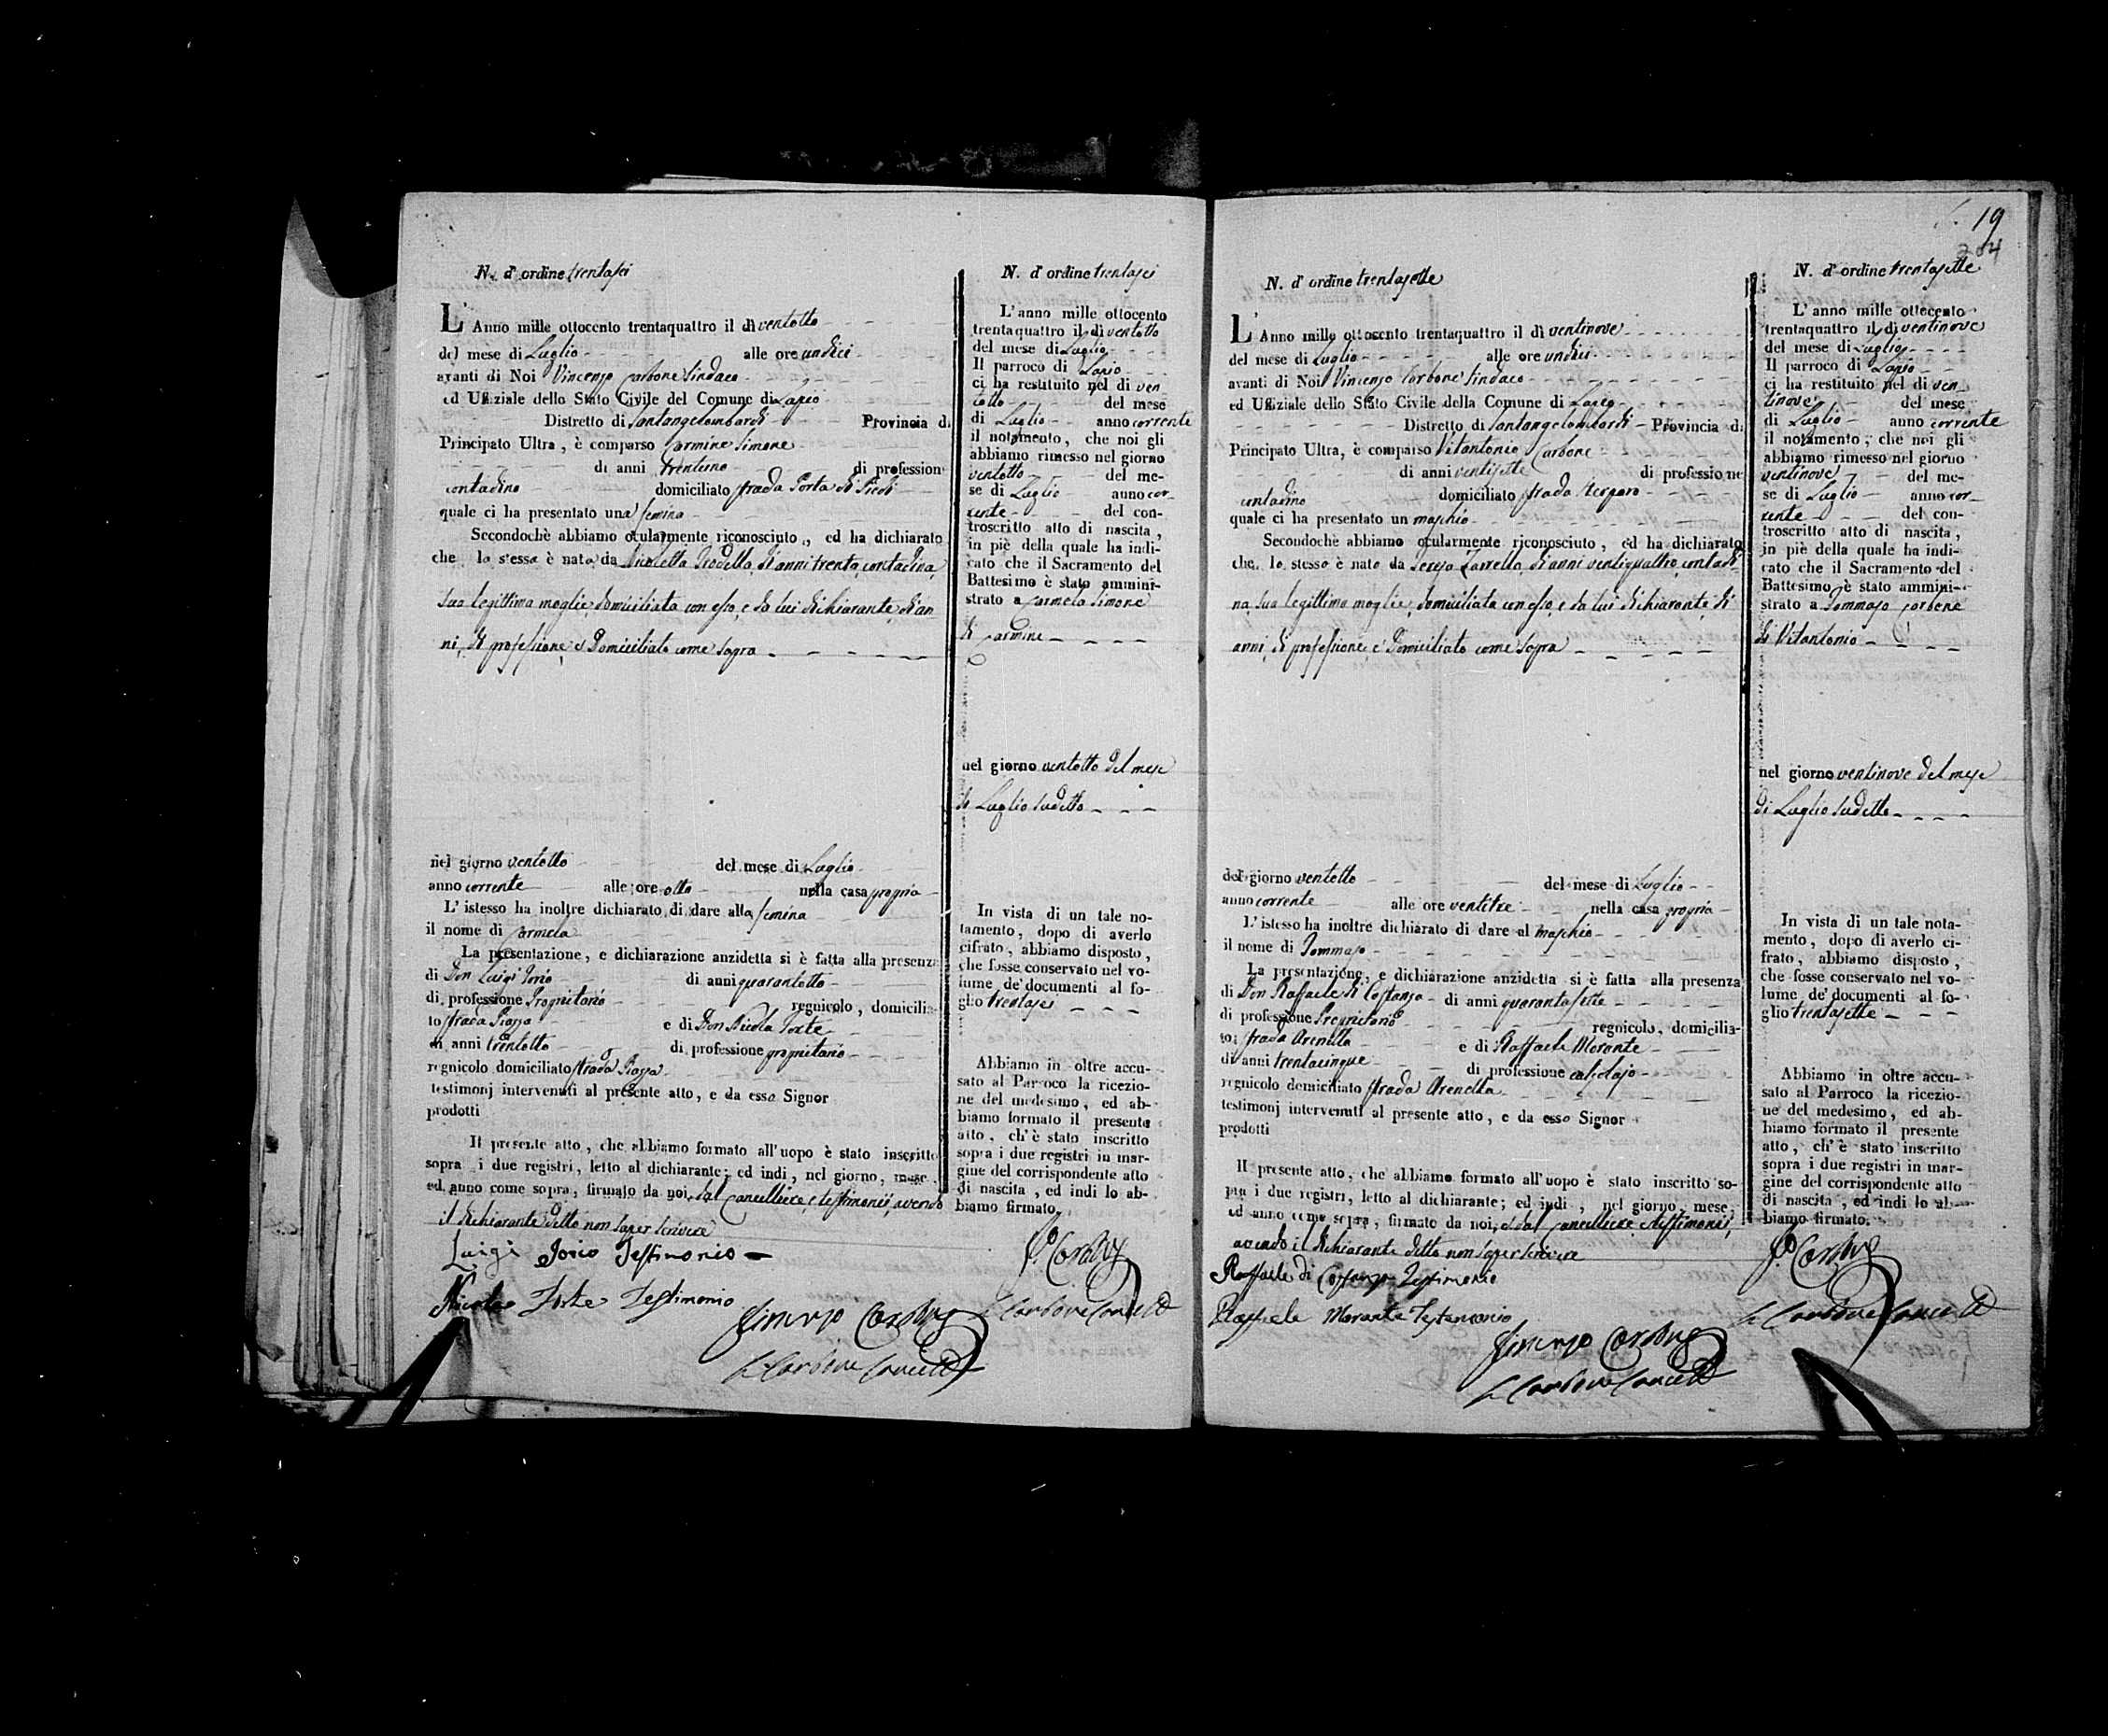 N. d'ordine trentasei
L'Anno mille ottocento trentaquattro il dì ventotto
del mese di Luglio alle ore undici
avanti di Noi Vincenzo Carbone Sindaco
ed Uffiziale dello Stato Civile del Comune di Lapio
Distretto di Santangelombardi Provincia di
Principato Ultra, è comparso Carmine Simone
di anni trentuno di profession
contadino domiciliato strada Porta di Piedi
quale ci ha presentato una femina
Secondochè abbiamo ocularmente riconosciuto, ed ha dichiarato
che la stessa è nata da Nicoletta di anni trenta, contadina,
sua legittima moglie, domiciliata con esso, e da lui dichiarante, di an-
ni, di professione, e domiciliato come sopra
nel giorno ventotto del mese di Luglio
anno corrente alle ore otto nella casa propria
L'istesso ha inoltre dichiarato di dare alla femina
il nome di Carmela
La presentazione, e dichiarazione anzidetta si è fatta alla presenza
di Don Luigi Iorio di anni quarantotto
di professione Proprietario regnicolo, domicilia-
to strada Piazza e di Don Nicola Forte
di anni trentotto di professione proprietario
regnicolo domiciliato strada Piazza
testimonj intervenuti al presente atto, e da esso Signor
prodotti
Il presente atto, che abbiamo formato all'uopo è stato inscritto
sopra i due registri, letto al dichiarante; ed indi, nel giorno, mese,
ed anno come sopra, firmato da noi, dal Cancelliere, e testimonii, avendo
il dichiarante detto non saper scrivere
Luigi Iorio Testimonio
Nicola Forte Testimonio
Vincenzo Carbone
Carbone Cancell.
N. d'ordine trentasei
L'anno mille ottocento
trentaquattro il dì ventotto
del mese di Luglio
Il parroco di Lapio
ci ha restituito nel dì ven
totto del mese
di Luglio anno corrente
il notamento, che noi gli
abbiamo rimesso nel giorno
ventotto del me-
se di Luglio anno cor-
rente del con-
troscritto atto di nascita,
in piè della quale ha indi-
cato che il Sacramento del
Battesimo è stato ammini-
strato a Carmela Simone
di Carmine
nel giorno ventotto del mese
di Luglio sudetto
In vista di un tale no-
tamento, dopo di averlo
cifrato, abbiamo disposto,
che fosse conservato nel vo-
lume de' documenti al fo-
glio trentasei
Abbiamo in oltre accu-
sato al Parroco la ricezio-
ne del medesimo, ed ab-
biamo formato il presente
atto, ch'è stato inscritto
sopra i due registri in mar-
gine del corrispondente atto
di nascita, ed indi lo ab-
biamo firmato.
Carbone
Carbone Cancell.
19
204
N. d'ordine trentasette
L'Anno mille ottocento trentaquattro il dì ventinove
del mese di Luglio alle ore undici
avanti di Noi Vincenzo Carbone Sindaco
ed Uffiziale dello Stato Civile della Comune di Lapio
Distretto di Santangelombardi Provincia di
Principato Ultra, è comparso Vitantonio Carbone
di anni ventisette di professione
contadino domiciliato strada
quale ci ha presentato un maschio
Secondochè abbiamo ocularmente riconosciuto, ed ha dichiarato
che lo stesso è nato da Teresa Zarrella, di anni ventiquattro, contadi-
na sua legittima moglie, domiciliata con esso, e da lui dichiarante, di
anni, di professione, e domiciliato come sopra
del giorno ventotto del mese di Luglio
anno corrente alle ore ventitre nella casa propria
L'istesso ha inoltre dichiarato di dare al maschio
il nome di Tommaso
La presentazione, e dichiarazione anzidetta si è fatta alla presenza
di Don Raffaele di Costanzo di anni quarantasette
di professione Proprietario regnicolo, domicilia-
to strada Arenella e di Raffaele Morante
di anni trentacinque di professione calzolajo
regnicolo domiciliato strada Arenella
testimonj intervenuti al presente atto, e da esso Signor
prodotti
Il presente atto, che abbiamo formato all'uopo è stato inscritto so-
pra i due registri, letto al dichiarante; ed indi, nel giorno, mese,
ed anno come sopra, firmato da noi, dal Cancelliere, e testimonii,
avendo il dichiarante detto non saper scrivere
Raffaele di Costanzo Testimonio
Raffaele Morante Testimonio
Vincenzo Carbone
Carbone Cancell.
N. d'ordine trentasette
L'anno mille ottocento
trentaquattro il dì ventinove
del mese di Luglio
Il parroco di Lapio
ci ha restituito nel dì ven-
tinove del mese
di Luglio anno corrente
il notamento, che noi gli
abbiamo rimesso nel giorno
ventinove del me-
se di Luglio anno cor-
rente del con-
troscritto atto di nascita,
in piè della quale ha indi-
cato che il Sacramento del
Battesimo è stato ammini-
strato a Tommaso Carbone
di Vitantonio
nel giorno ventinove del mese
di Luglio sudetto
In vista di un tale nota-
mento, dopo di averlo ci-
frato, abbiamo disposto,
che fosse conservato nel vo-
lume de' documenti al fo-
glio trentasette
Abbiamo in oltre accu-
sato al Parroco la ricezio-
ne del medesimo, ed ab-
biamo formato il presente
atto, ch'è stato inscritto
sopra i due registri in mar-
gine del corrispondente atto
di nascita, ed indi lo ab-
biamo firmato.
Carbone
Carbone Cancell.